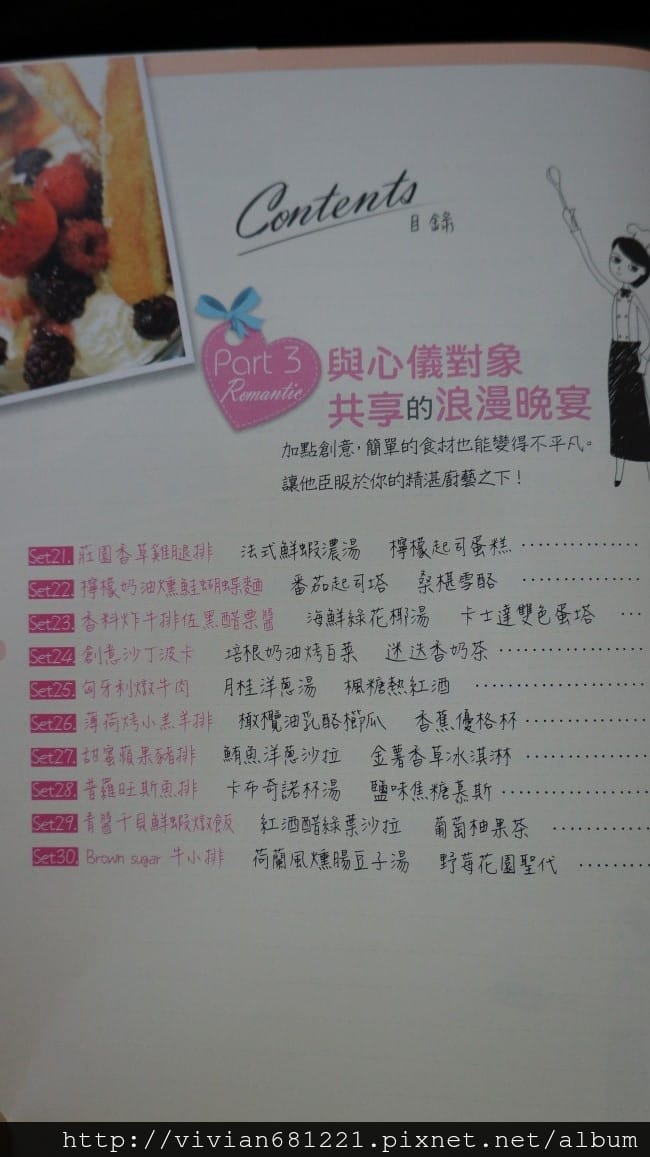 Contents
目錄
Part 3
Romantic
與心儀對象
共享的浪漫晚宴
加點創意，簡單的食材也能變得不平凡。
讓他臣服於你的精湛廚藝之下！
Set21. 莊園香草雞腿排 法式鮮蝦濃湯 檸檬起司蛋糕
Set22. 檸檬奶油燻鮭蝴蝶麵 番茄起司塔 桑椹雪酪
Set23. 香料炸牛排佐黑醋栗醬 海鮮綠花椰湯 卡士達雙色蛋塔
Set24. 創意沙丁波卡 培根奶油烤白菜 迷迭香奶茶
Set25. 匈牙利燉牛肉 月桂洋蔥湯 楓糖熱紅酒
Set26. 薄荷烤小羔羊排 橄欖油乳酪櫛瓜 香蕉優格杯
Set27. 甜蜜蘋果豬排 鮪魚洋蔥沙拉 金薯香草冰淇淋
Set28. 普羅旺斯魚排 卡布奇諾杯湯 鹽味焦糖慕斯
Set29. 青醬干貝鮮蝦燉飯 紅酒醋綠葉沙拉 葡萄柚果茶
Set30. Brown sugar 牛小排 荷蘭風燻腸豆子湯 野莓花園聖代
http://vivian681221.pixnet.net/album